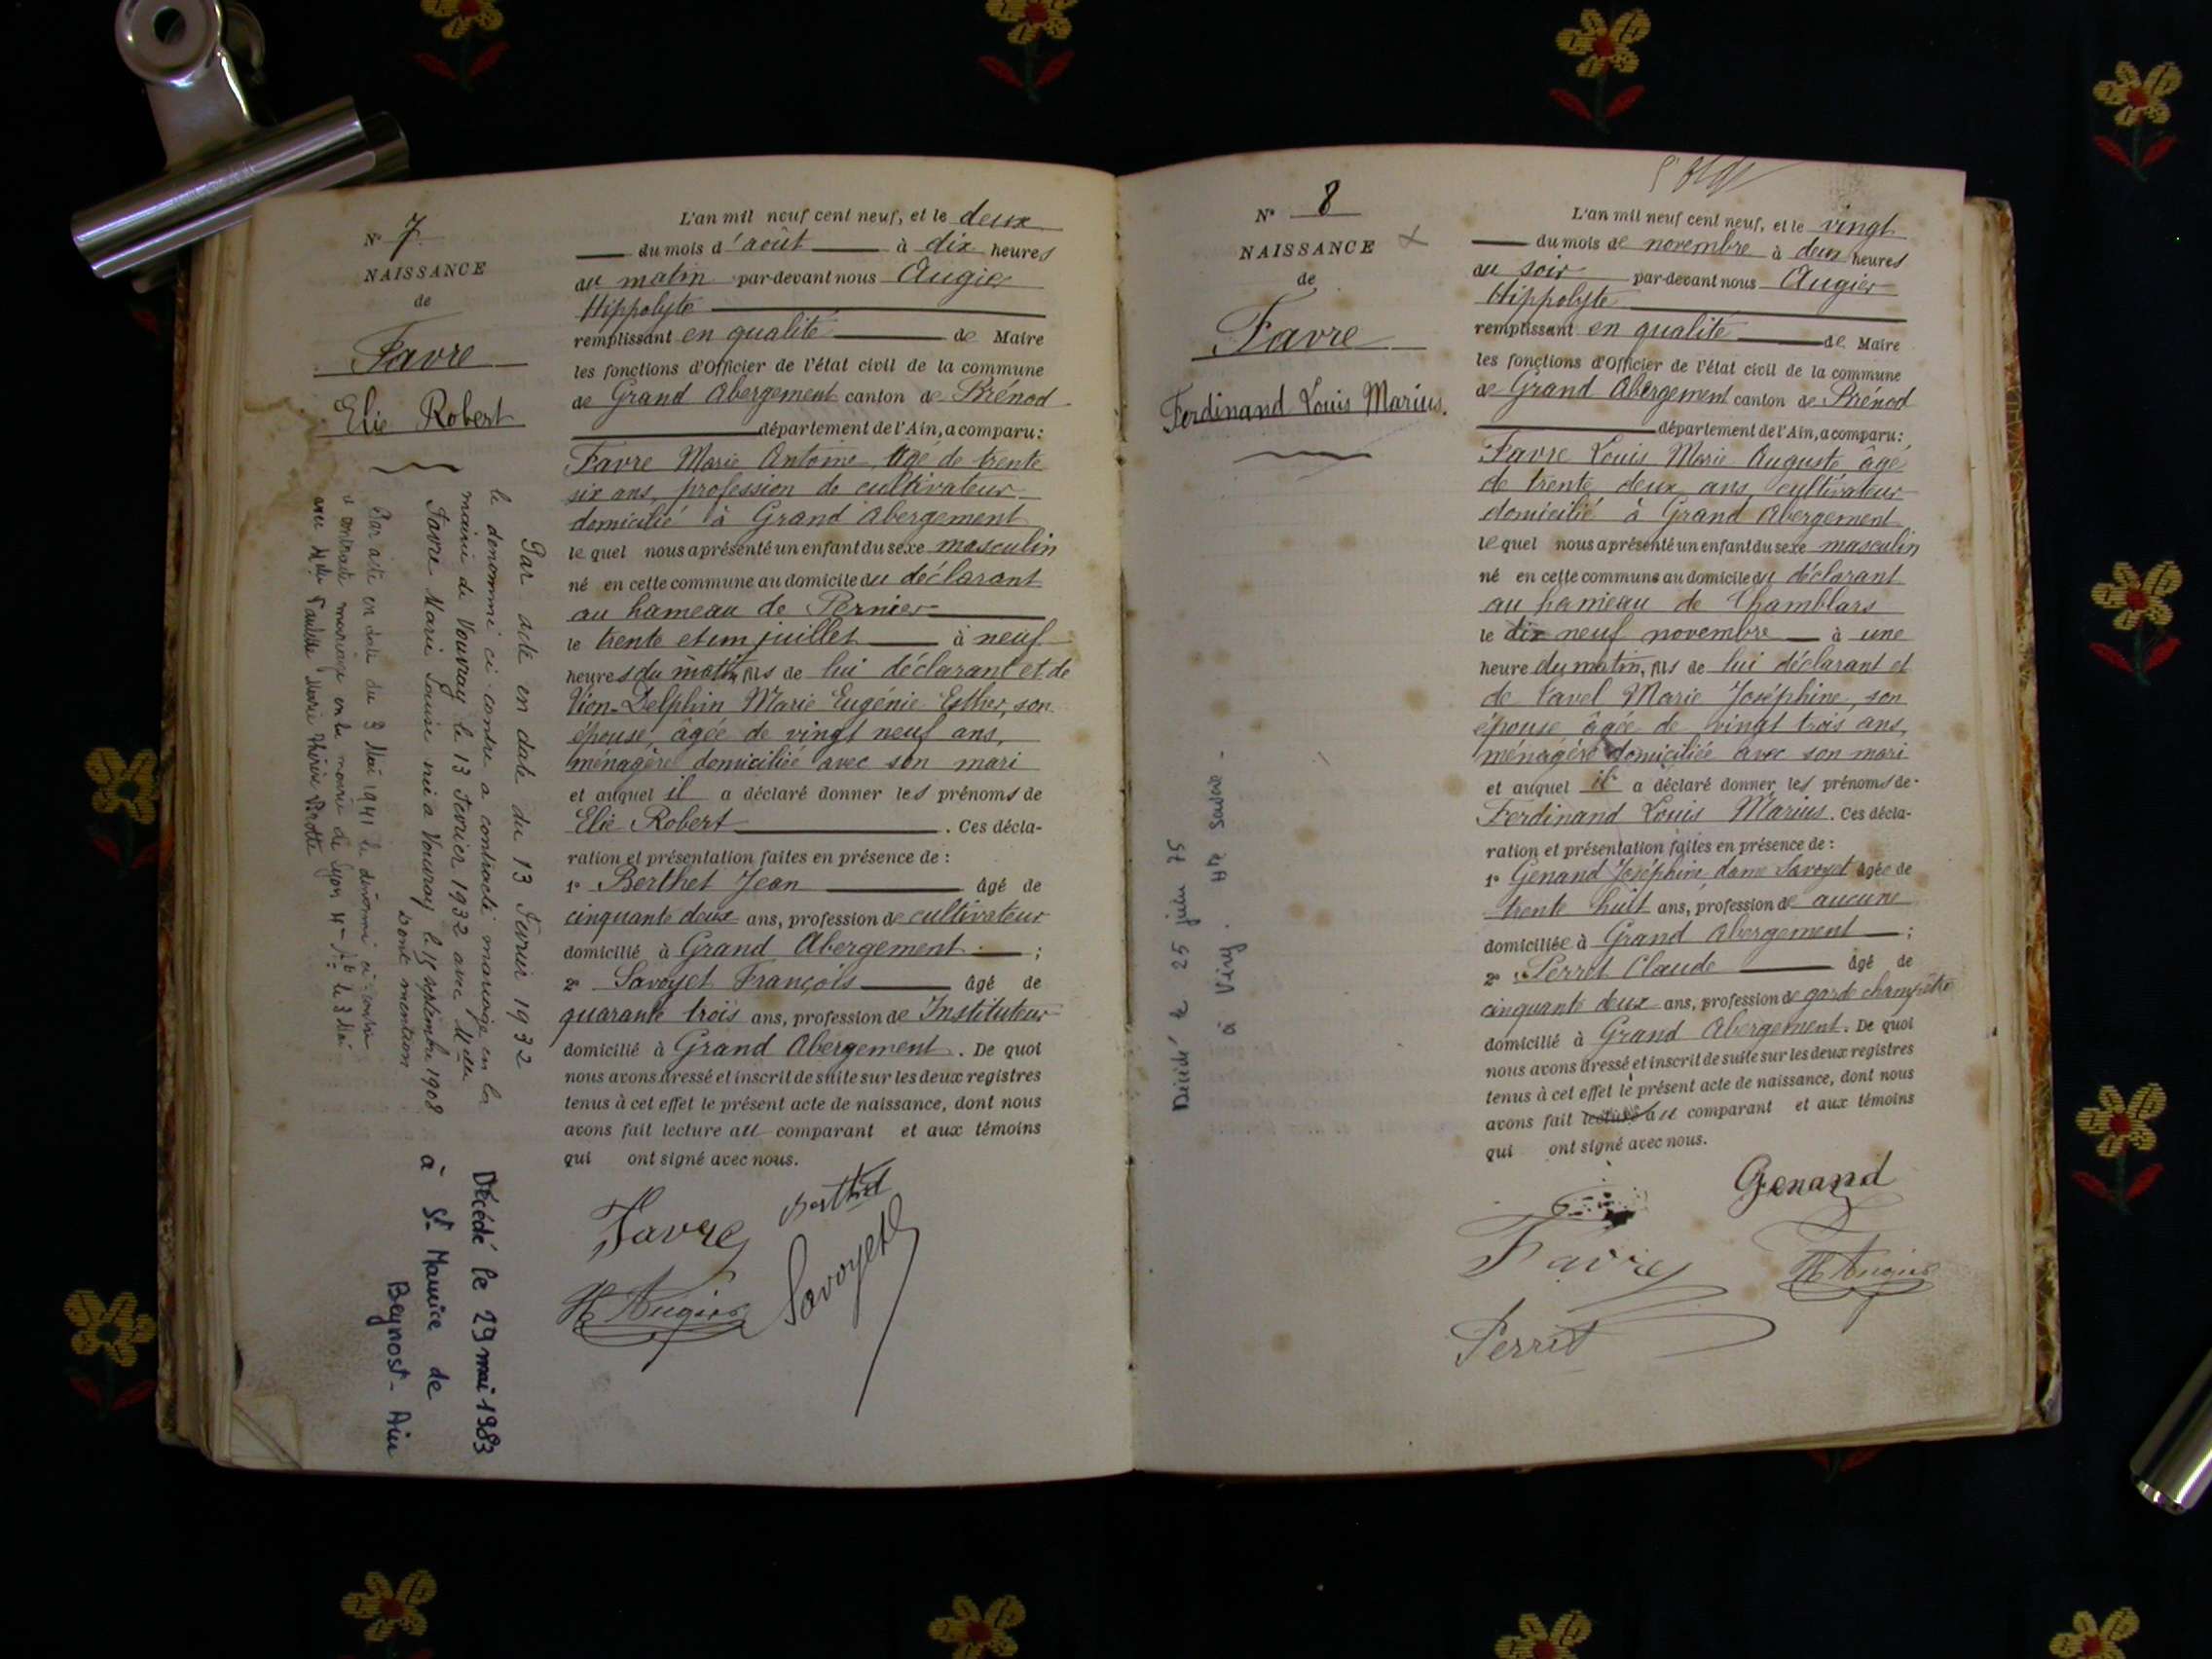 N° 7
NAISSANCE
de
Favre
Elie Robert
Par acte en date du 13 Fevrier 1932
le denommé ci contre a contracté mariage en la
mairie de Vouvray le 13 Fevrier 1932 avec Melle
Favre Marie Louise née a Vouvray le 15 septembre 1908
Dont mention
Par acte en date du 3 Mai 1941 le dénommé ci-contre
a contracté mariage en la mairie de Lyon le 3 Mai
avec Melle Paulette Marie Thérèse
Décédé le 29 mai 1983
à St Maurice de
Beynost - Ain
L'an mil neuf cent neuf, et le deux
du mois d'août à dix heures
du matin par-devant nous Augier
Hippolyte
remplissant en qualité de Maire
les fonctions d'Officier de l'état civil de la commune
de Grand Abergement canton de Brénod
département de l'Ain, a comparu :
Favre Marie Antoine, âgé de trente
six ans, profession de cultivateur
domicilié à Grand Abergement
lequel nous a présenté un enfant du sexe masculin
né en cette commune au domicile du déclarant
au hameau de Pernier
le trente et un juillet à neuf
heures du matin, fils de lui déclarant et de
Vion-Delphin Marie Eugénie Esther, son
épouse, âgée de vingt neuf ans,
ménagère domiciliée avec son mari
et auquel il a déclaré donner les prénoms de
Elie Robert . Ces décla-
ration et présentation faites en présence de :
1° Berthet Jean âgé de
cinquante deux ans, profession de cultivateur
domicilié à Grand Abergement ;
2° Savoyet François âgé de
quarante trois ans, profession de Instituteur
domicilié à Grand Abergement . De quoi
nous avons dressé et inscrit de suite sur les deux registres
tenus à cet effet le présent acte de naissance, dont nous
avons fait lecture au comparant et aux témoins
qui ont signé avec nous.
Favre Berthet
H Augier Savoyet
N° 8
NAISSANCE
de
Favre
Ferdinand Louis Marius.
Décédé le 25 juin 75
à Viry. Hte Savoie -
L'an mil neuf cent neuf, et le vingt
du mois de novembre à deux heures
du soir par-devant nous Augier
Hippolyte
remplissant en qualité de Maire
les fonctions d'Officier de l'état civil de la commune
de Grand Abergement canton de Brénod
département de l'Ain, a comparu :
Favre Louis Marie Auguste âgé
de trente deux ans, cultivateur
domicilié à Grand Abergement
lequel nous a présenté un enfant du sexe masculin
né en cette commune au domicile du déclarant
au hameau de Chamblars
le dix neuf novembre à une
heure du matin, fils de lui déclarant et
de Tavel Marie Joséphine, son
épouse âgée de vingt trois ans,
ménagère domiciliée avec son mari
et auquel il a déclaré donner les prénoms de
Ferdinand Louis Marius. Ces décla-
ration et présentation faites en présence de :
1° Genand Joséphine dame Savoyet âgée de
trente huit ans, profession de aucune
domiciliée à Grand Abergement ;
2° Perret Claude âgé de
cinquante deux ans, profession de garde champêtre
domicilié à Grand Abergement. De quoi
nous avons dressé et inscrit de suite sur les deux registres
tenus à cet effet le présent acte de naissance, dont nous
avons fait lecture au comparant et aux témoins
qui ont signé avec nous.
Genand
Favre H Augier
Perret